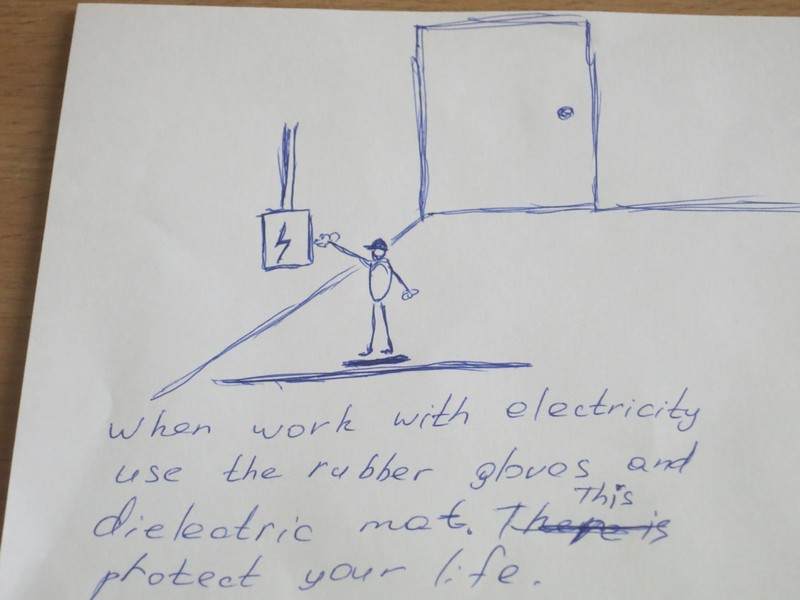 When work with electricity
use the rubber gloves and
dielectric mat. This
protect your life.